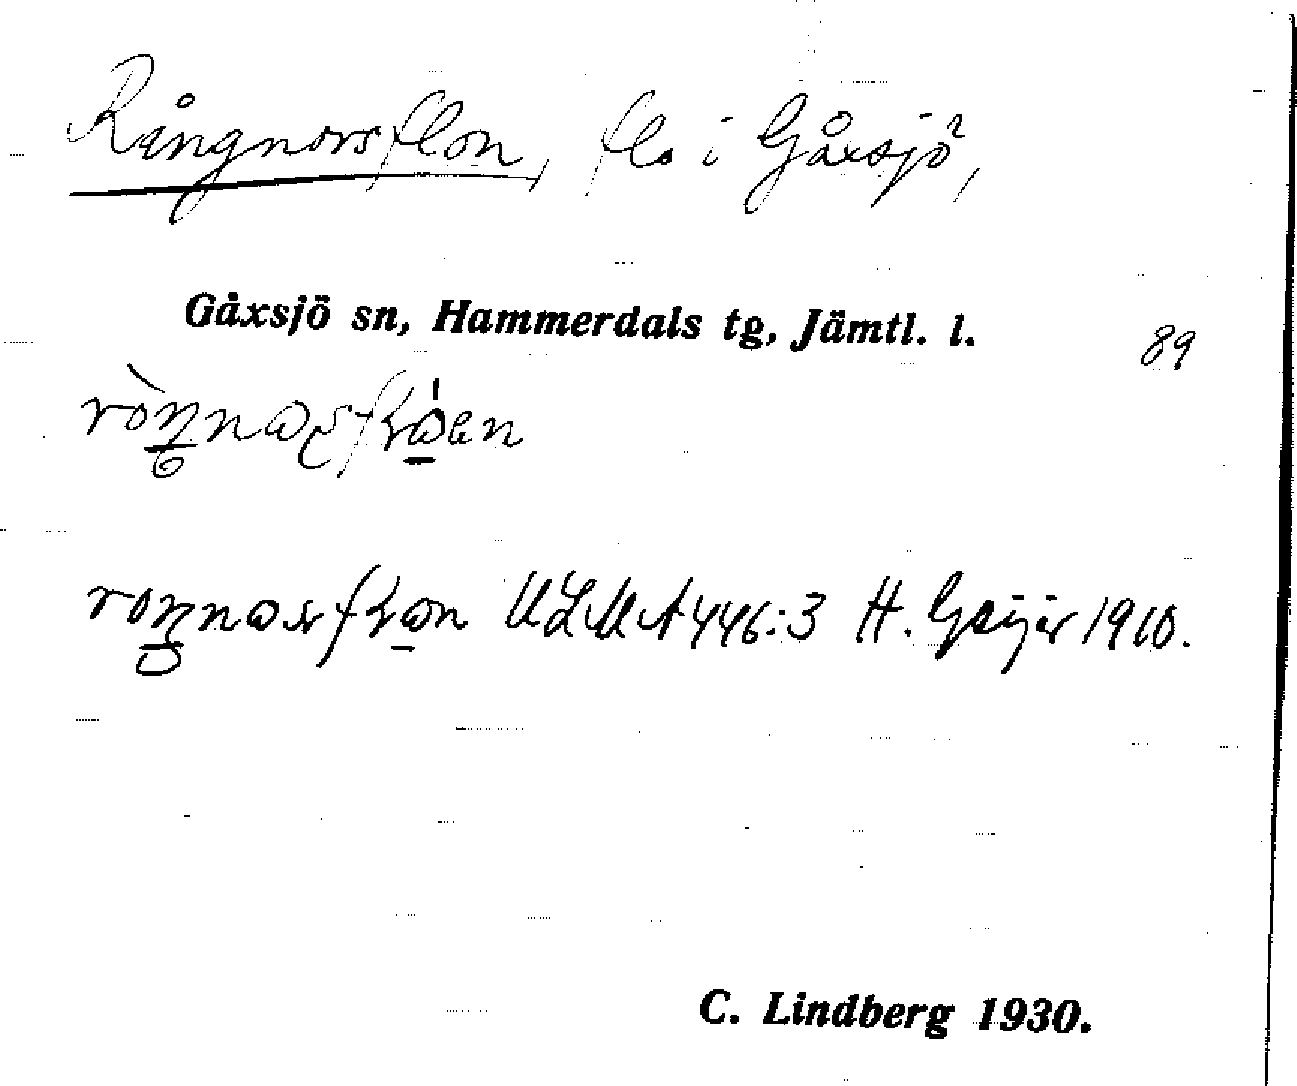 Rångnorsflon, flo i Gåxsjö,
Gåxsjö sn, Hammerdals tg, Jämtl. l.
89
ULMA 446:3 H. Geijer 1910.
C. Lindberg 1930.